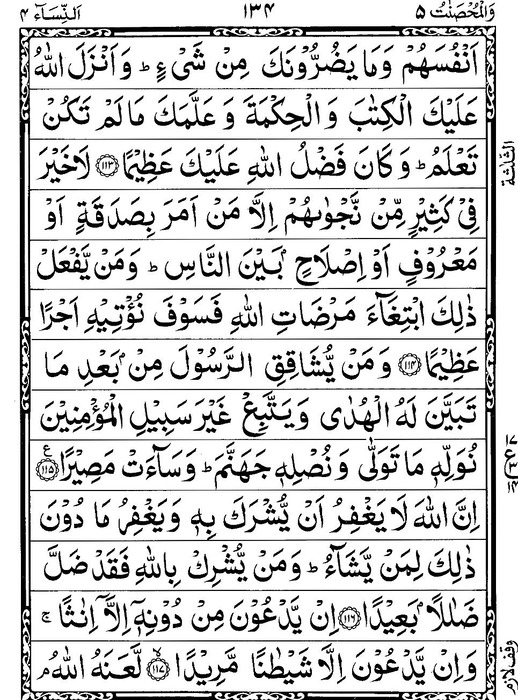 وَالْمُحْصَنٰتُ ۵ ۱۳۴ اَلنِّسَآء ۴
اَنْفُسَهُمْ وَمَا يَضُرُّوْنَكَ مِنْ شَیْءٍ ؕ وَاَنْزَلَ اللّٰهُ
عَلَيْكَ الْكِتٰبَ وَالْحِكْمَةَ وَعَلَّمَكَ مَا لَمْ تَكُنْ
تَعْلَمُ ؕ وَكَانَ فَضْلُ اللّٰهِ عَلَيْكَ عَظِيْمًا ﴿۱۱۳﴾ لَا خَيْرَ
فِیْ كَثِيْرٍ مِّنْ نَّجْوٰىهُمْ اِلَّا مَنْ اَمَرَ بِصَدَقَةٍ اَوْ
مَعْرُوْفٍ اَوْ اِصْلَاحٍۭ بَيْنَ النَّاسِ ؕ وَمَنْ يَّفْعَلْ
ذٰلِكَ ابْتِغَآءَ مَرْضَاتِ اللّٰهِ فَسَوْفَ نُؤْتِيْهِ اَجْرًا
عَظِيْمًا ﴿۱۱۴﴾ وَمَنْ يُّشَاقِقِ الرَّسُوْلَ مِنْۢ بَعْدِ مَا
تَبَيَّنَ لَهُ الْهُدٰى وَيَتَّبِعْ غَيْرَ سَبِيْلِ الْمُؤْمِنِيْنَ
نُوَلِّهٖ مَا تَوَلّٰى وَنُصْلِهٖ جَهَنَّمَ ؕ وَسَآءَتْ مَصِيْرًا ﴿۱۱۵﴾ ع
اِنَّ اللّٰهَ لَا يَغْفِرُ اَنْ يُّشْرَكَ بِهٖ وَيَغْفِرُ مَا دُوْنَ
ذٰلِكَ لِمَنْ يَّشَآءُ ؕ وَمَنْ يُّشْرِكْ بِاللّٰهِ فَقَدْ ضَلَّ
ضَلٰلًاۢ بَعِيْدًا ﴿۱۱۶﴾ اِنْ يَّدْعُوْنَ مِنْ دُوْنِهٖۤ اِلَّاۤ اِنٰثًا ۚ
وَاِنْ يَّدْعُوْنَ اِلَّا شَيْطٰنًا مَّرِيْدًا ﴿۱۱۷﴾ لَّعَنَهُ اللّٰهُ ۘ
الثلثة
ع
وقف لازم